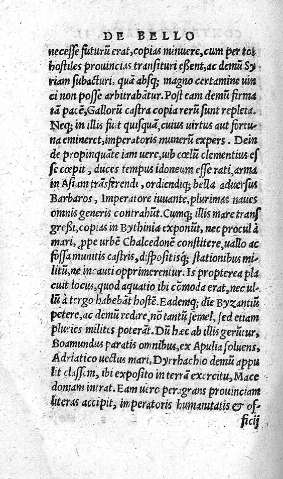 DE BELLO
necesse futurũ erat, copias minuere, cum per tot
hostiles prouincias transituri essent, ac demũ Sy
riam subacturi, quã absq; magno certamine uin
ci non posse arbitrabatur. Post eam demũ firma
tã pacẽ, Gallorũ castra copia rerũ sunt repleta.
Neq; in illis fut quisquã, cuius uirtus aut fortu
na emineret, imperatoris munerũ expers. Dein
de propinquãte iam uere, ubi cœlũ clementius es
se cœpit, duces tempus idoneum esse rati, arma
in Asiam trãsferendi, ordiendiq; bella aduersus
Barbaros, Imperatore iuuante, plurimas naues
omnis generis contrahũt. Cumq; illis mare trans
gressi, copias in Bythinia exponũt, nec procul à
mari, ꝓpe urbẽ Chalcedonẽ constitere, uallo ac
fossa munitis castris, dispositisq; stationibus mi-
litũ, ne incauti opprimerentur. Is propterea pla
cuit locus, quod aquatio ibi cõmoda erat, nec ul-
lũ à tergo habebãt hostẽ. Eademq; die Byzantiũ
petere, ac demũ redire, nõ tantũ semel, sed etiam
pluries milites poterãt. Dũ hæc ab illis gerũtur,
Boamundus paratis omnibus, ex Apulia soluens,
Adriatico uectus mari, Dyrrhachio demũ appu
lit classem, ibi exposito in terrã exercitu, Mace
doniam intrat. Eam uero peragrans prouinciam
literas accipit, imperatoris humanitatis & of-
ficij